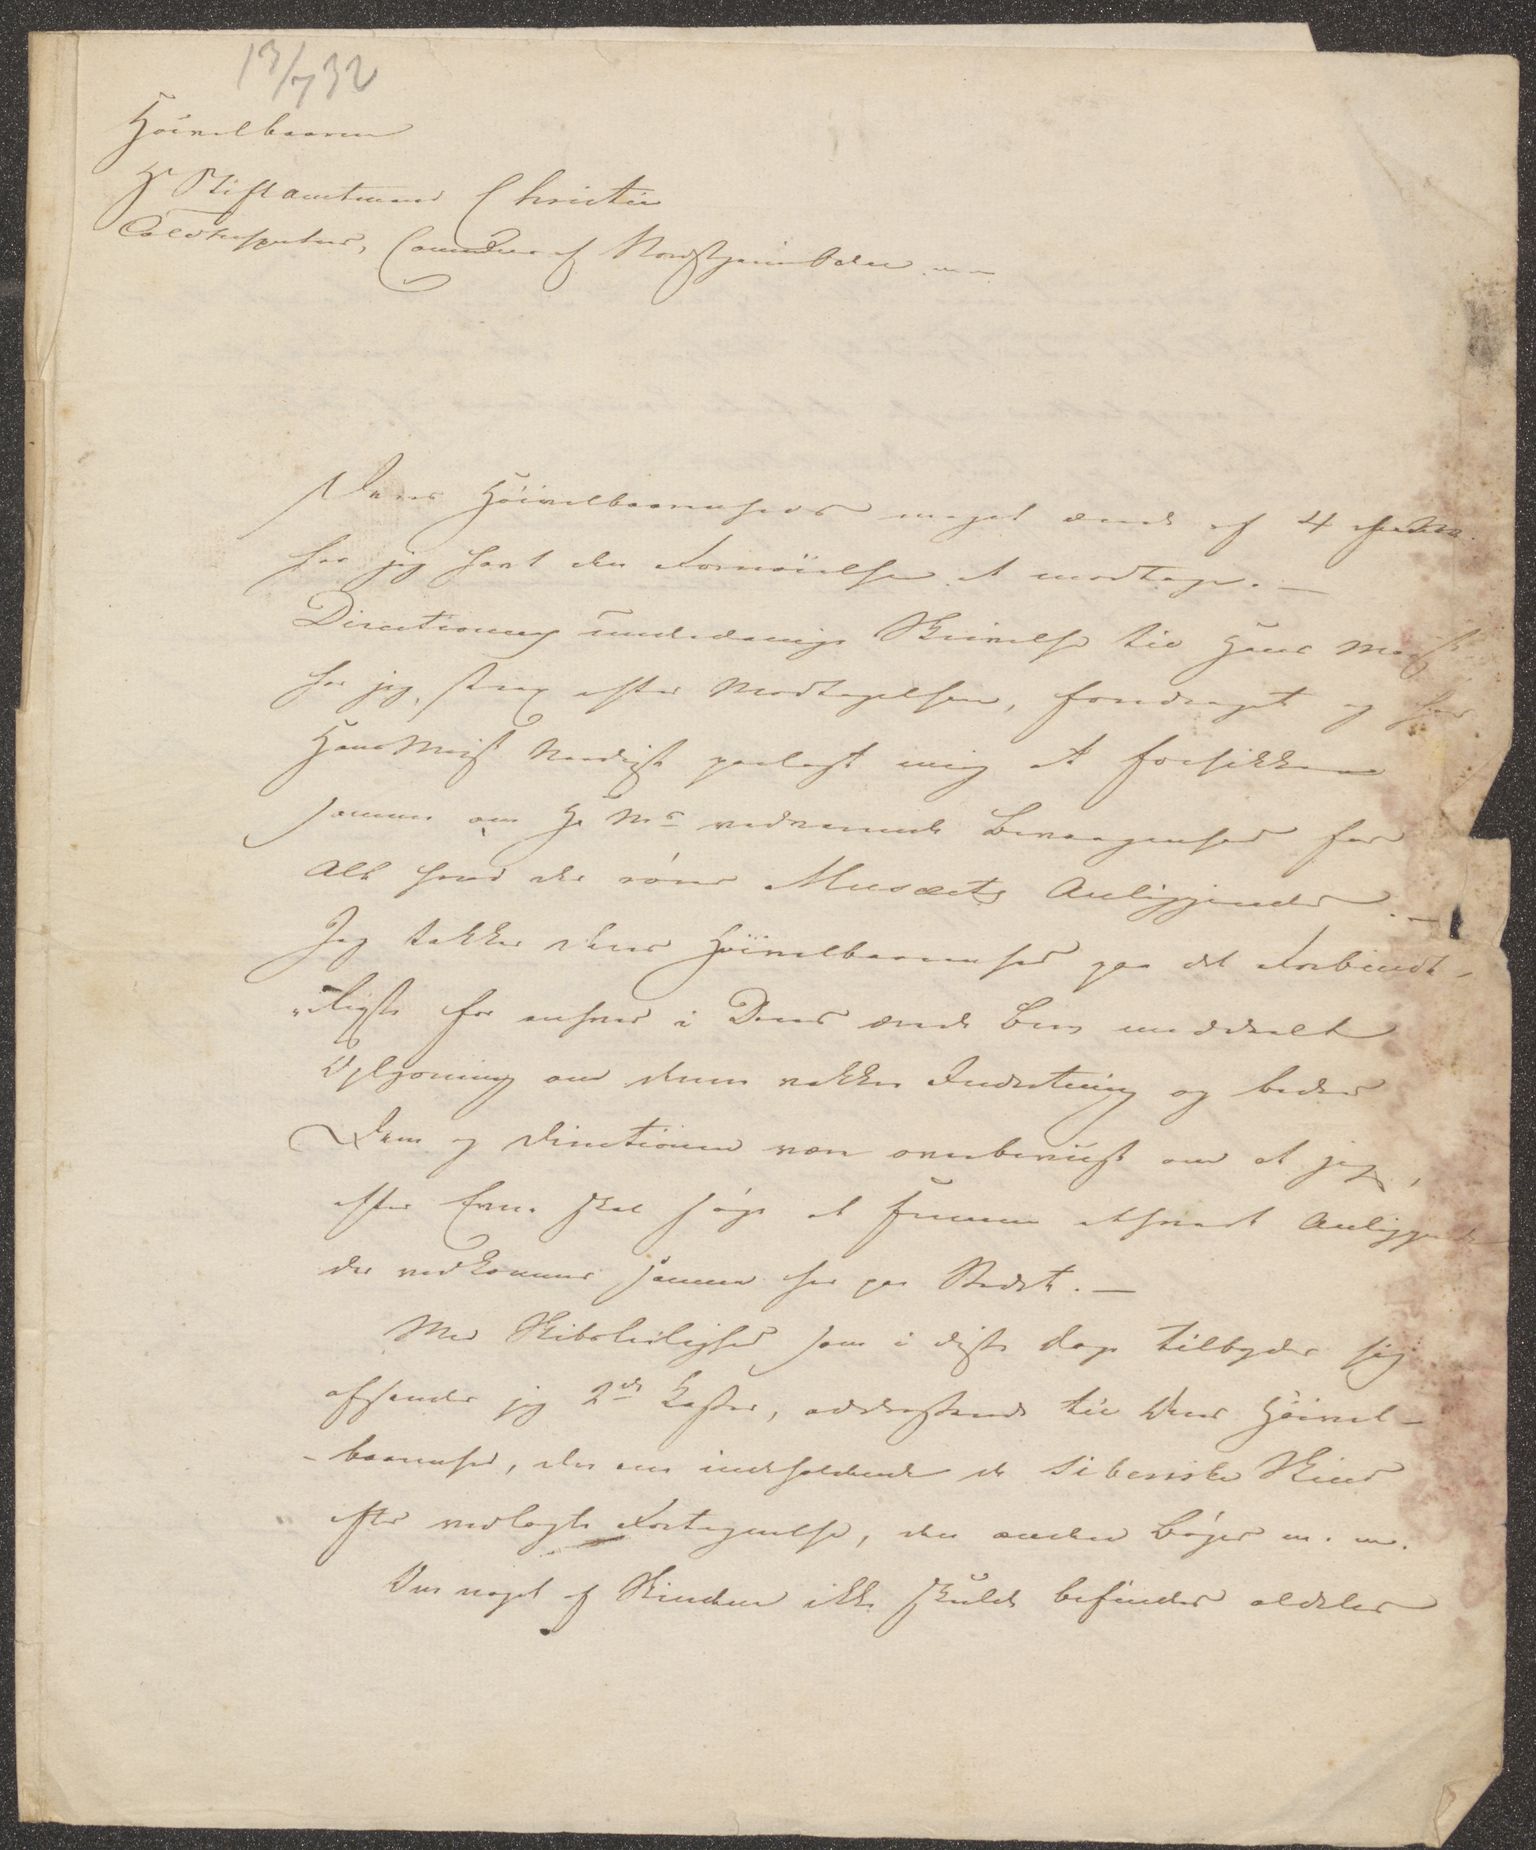 13/7 32
Höivelbaarne
Hr Stiftamtmand Christie
Toldinspecteur, Comandeur af Nordstjerne Ordenen m m
Deres Höivelbaarenheds meget ærede af 4 ds
har jeg havt den Fornöielse at modtage. —
Directionens underdanige Skrivelse til Hans Majst
har jeg, strax efter Modtagelsen, foredraget og har
Hans Majst Naadigst paalagt mig at forsikkre
samme om Hs Ms vedvarende Bevaagenhed for
Alt hvad der rörer Musæets Anliggender. —
Jeg takker Deres Höivelbaarenhed paa det Forbindt-
ligste for enhver i Deres ærede Brev meddeelt
Oplysning om denne vakkre Indretning og beder
Dem og Directionen være overbeviist om at jeg,
efter Evne skal söge at fremme ethvert Anliggende
der vedkommer samme her paa Stedet. —
Med Skibsleilighed som i disse dage tilbyder sig
afsender jeg 2de Kasser, addresserede til Deres Höivel-
-baarenhed, den ene indholdende de Siberiske Skind
efter vedlagte Fortegnelse, den anden Böger m. m.
Om noget af Skindene ikke skulde befindes aldeles